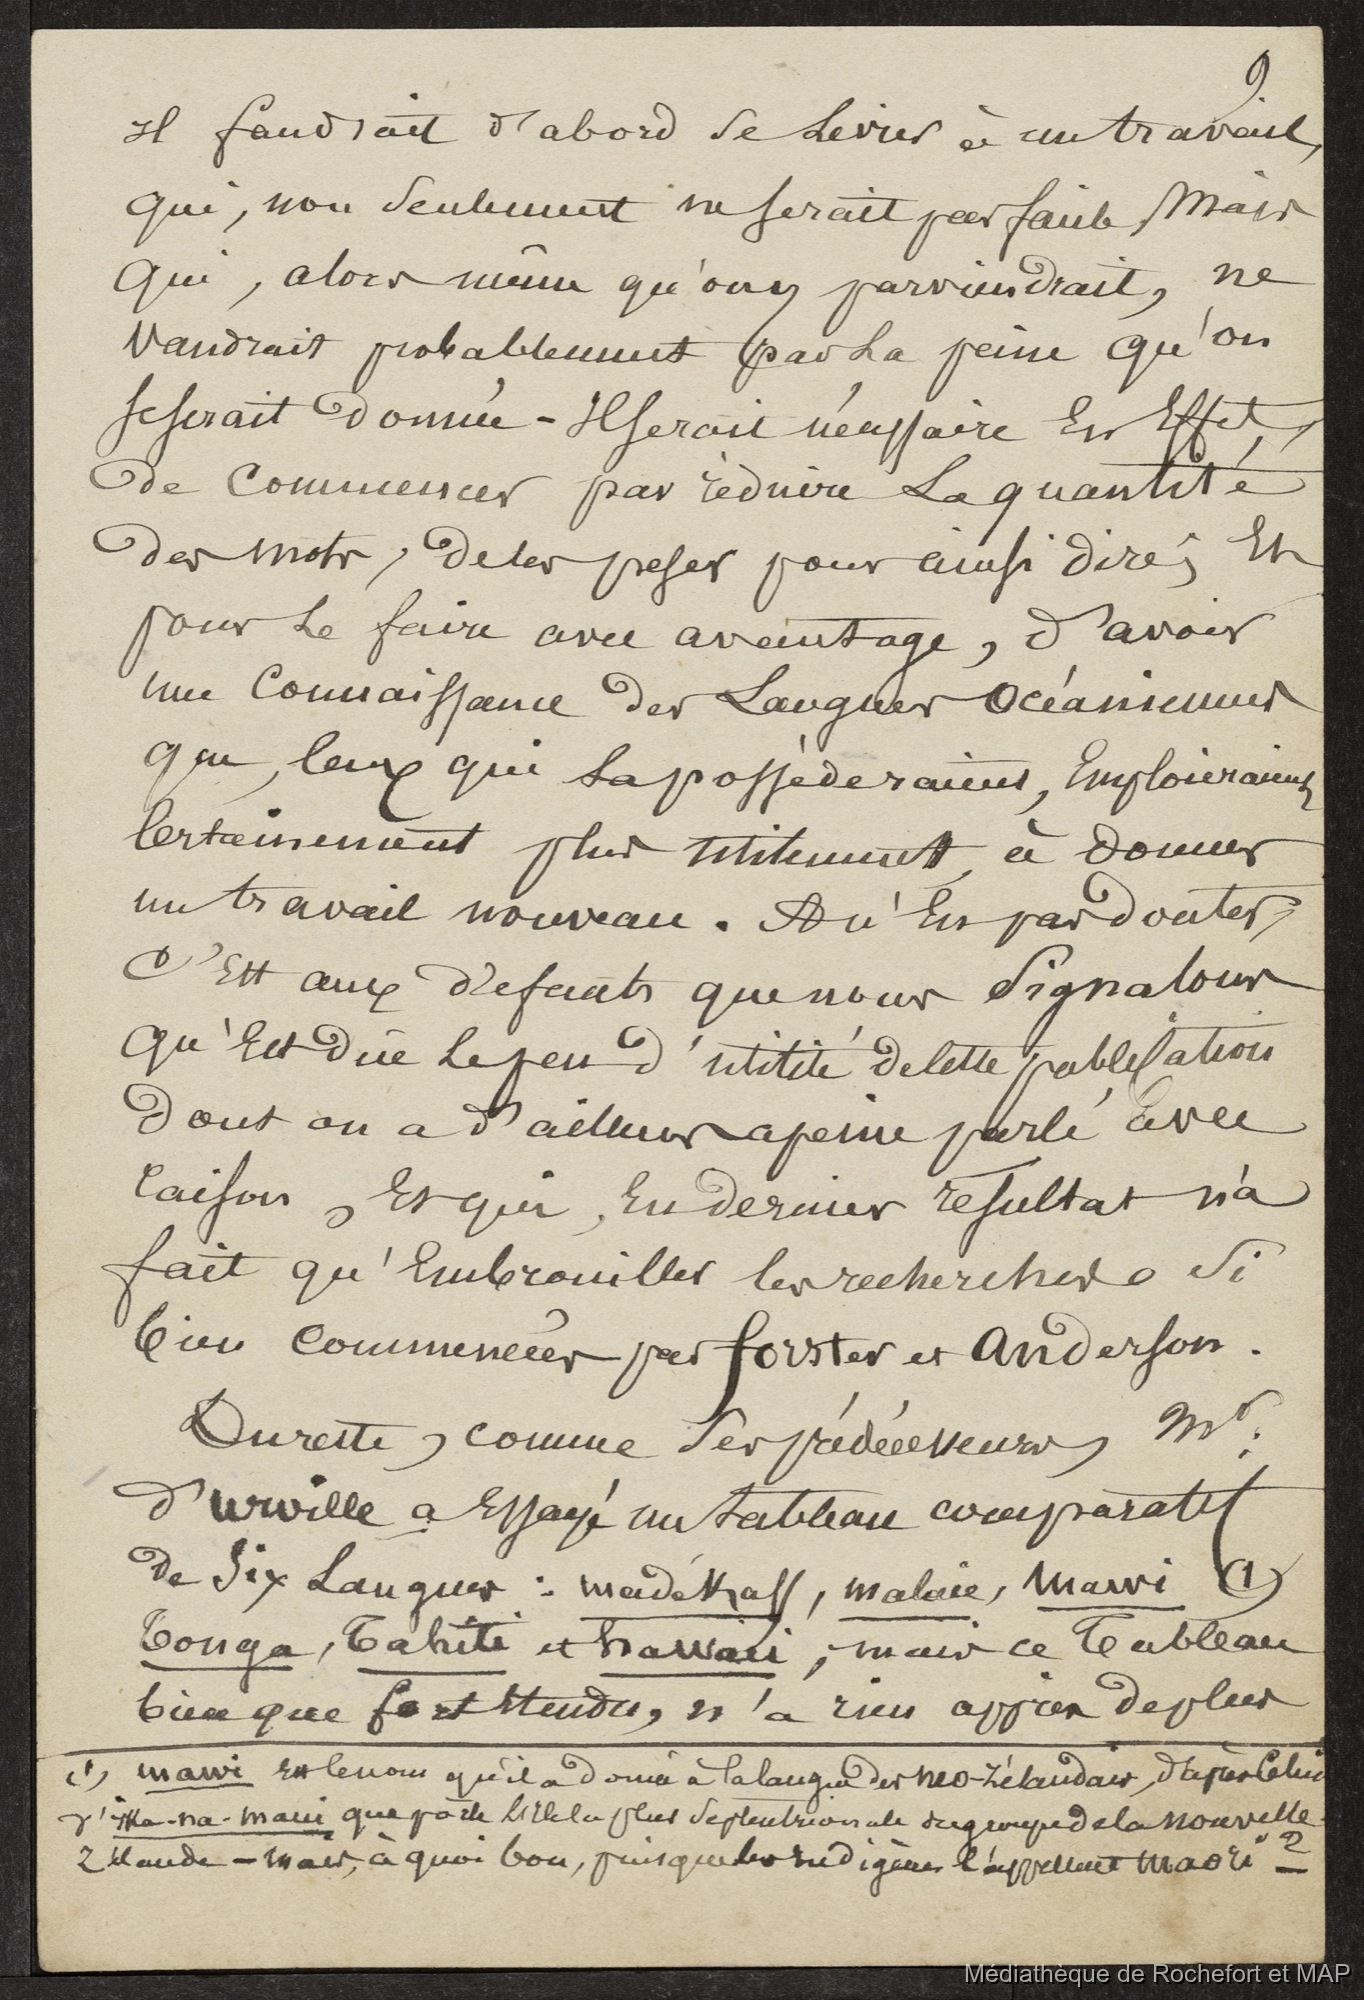 9
Il faudrait d'abord se livrer à un travail,
qui, non seulement ne serait pas facile, Mais
qui, alors même qu'on y parviendrait, ne
Vaudrait probablement pas la peine qu'on
se serait donnée - Il serait nécessaire En Effet,
de commencer par réduire La quantité
des mots, de les peser pour ainsi dire, Et
pour le faire avec avantage, d'avoir
une Connaissance des Langues Océaniennes
que, ceux qui la possèderaient, Emploieraient
Certainement plus utilement, à donner
un travail nouveau. A n'En pas douter,
C'Est aux défauts que nous Signalons
qu'Est due le peu d'utilité de cette publication
dont on a d'ailleurs a peine parlé avec
raison, Et qui, En dernier résultat n'a
fait qu'Embrouiller les recherches si
bien commencées par forster et Anderson.
Du reste, comme ses prédécesseurs, Mr.
d'urville a Essayé un tableau comparatif
de Six Langues : madékass, malaie, Mawi (1)
Tonga, Tahiti et hawaii, mais ce Tableau
bien que fort étendu, n'a rien appris de plus
(1) mawi Est le nom qu'il a donné à la langue des néo-zélandais, d'après Celui
d'ika-na-mawi que porte L'Ile la plus Septentrionale du groupe de la nouvelle
Zélande - mais, à quoi bon, puisque les indigènes l'appellent Maori ?
Médiathèque de Rochefort et MAP